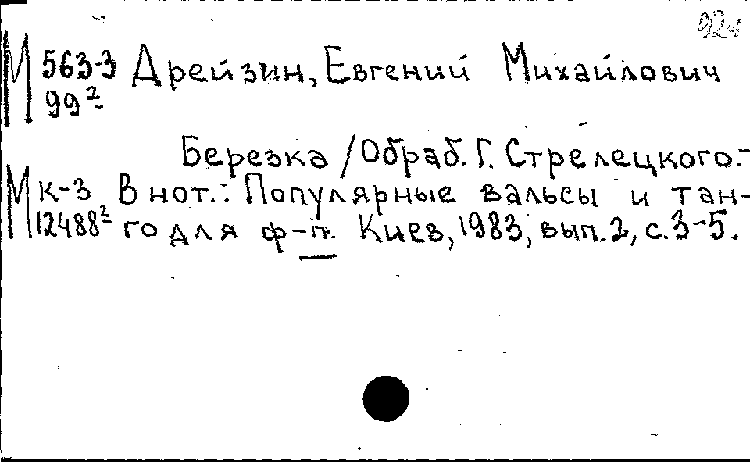 М 563-3 Дрейзин, Евгений Михайлович
99²
Березка / Обраб. Г. Стрелецкого.-
М к-3 В нот.: Популярные вальсы и тан-
12488² го для ф-п. Киев, 1983, вып. 2, с. 3-5.